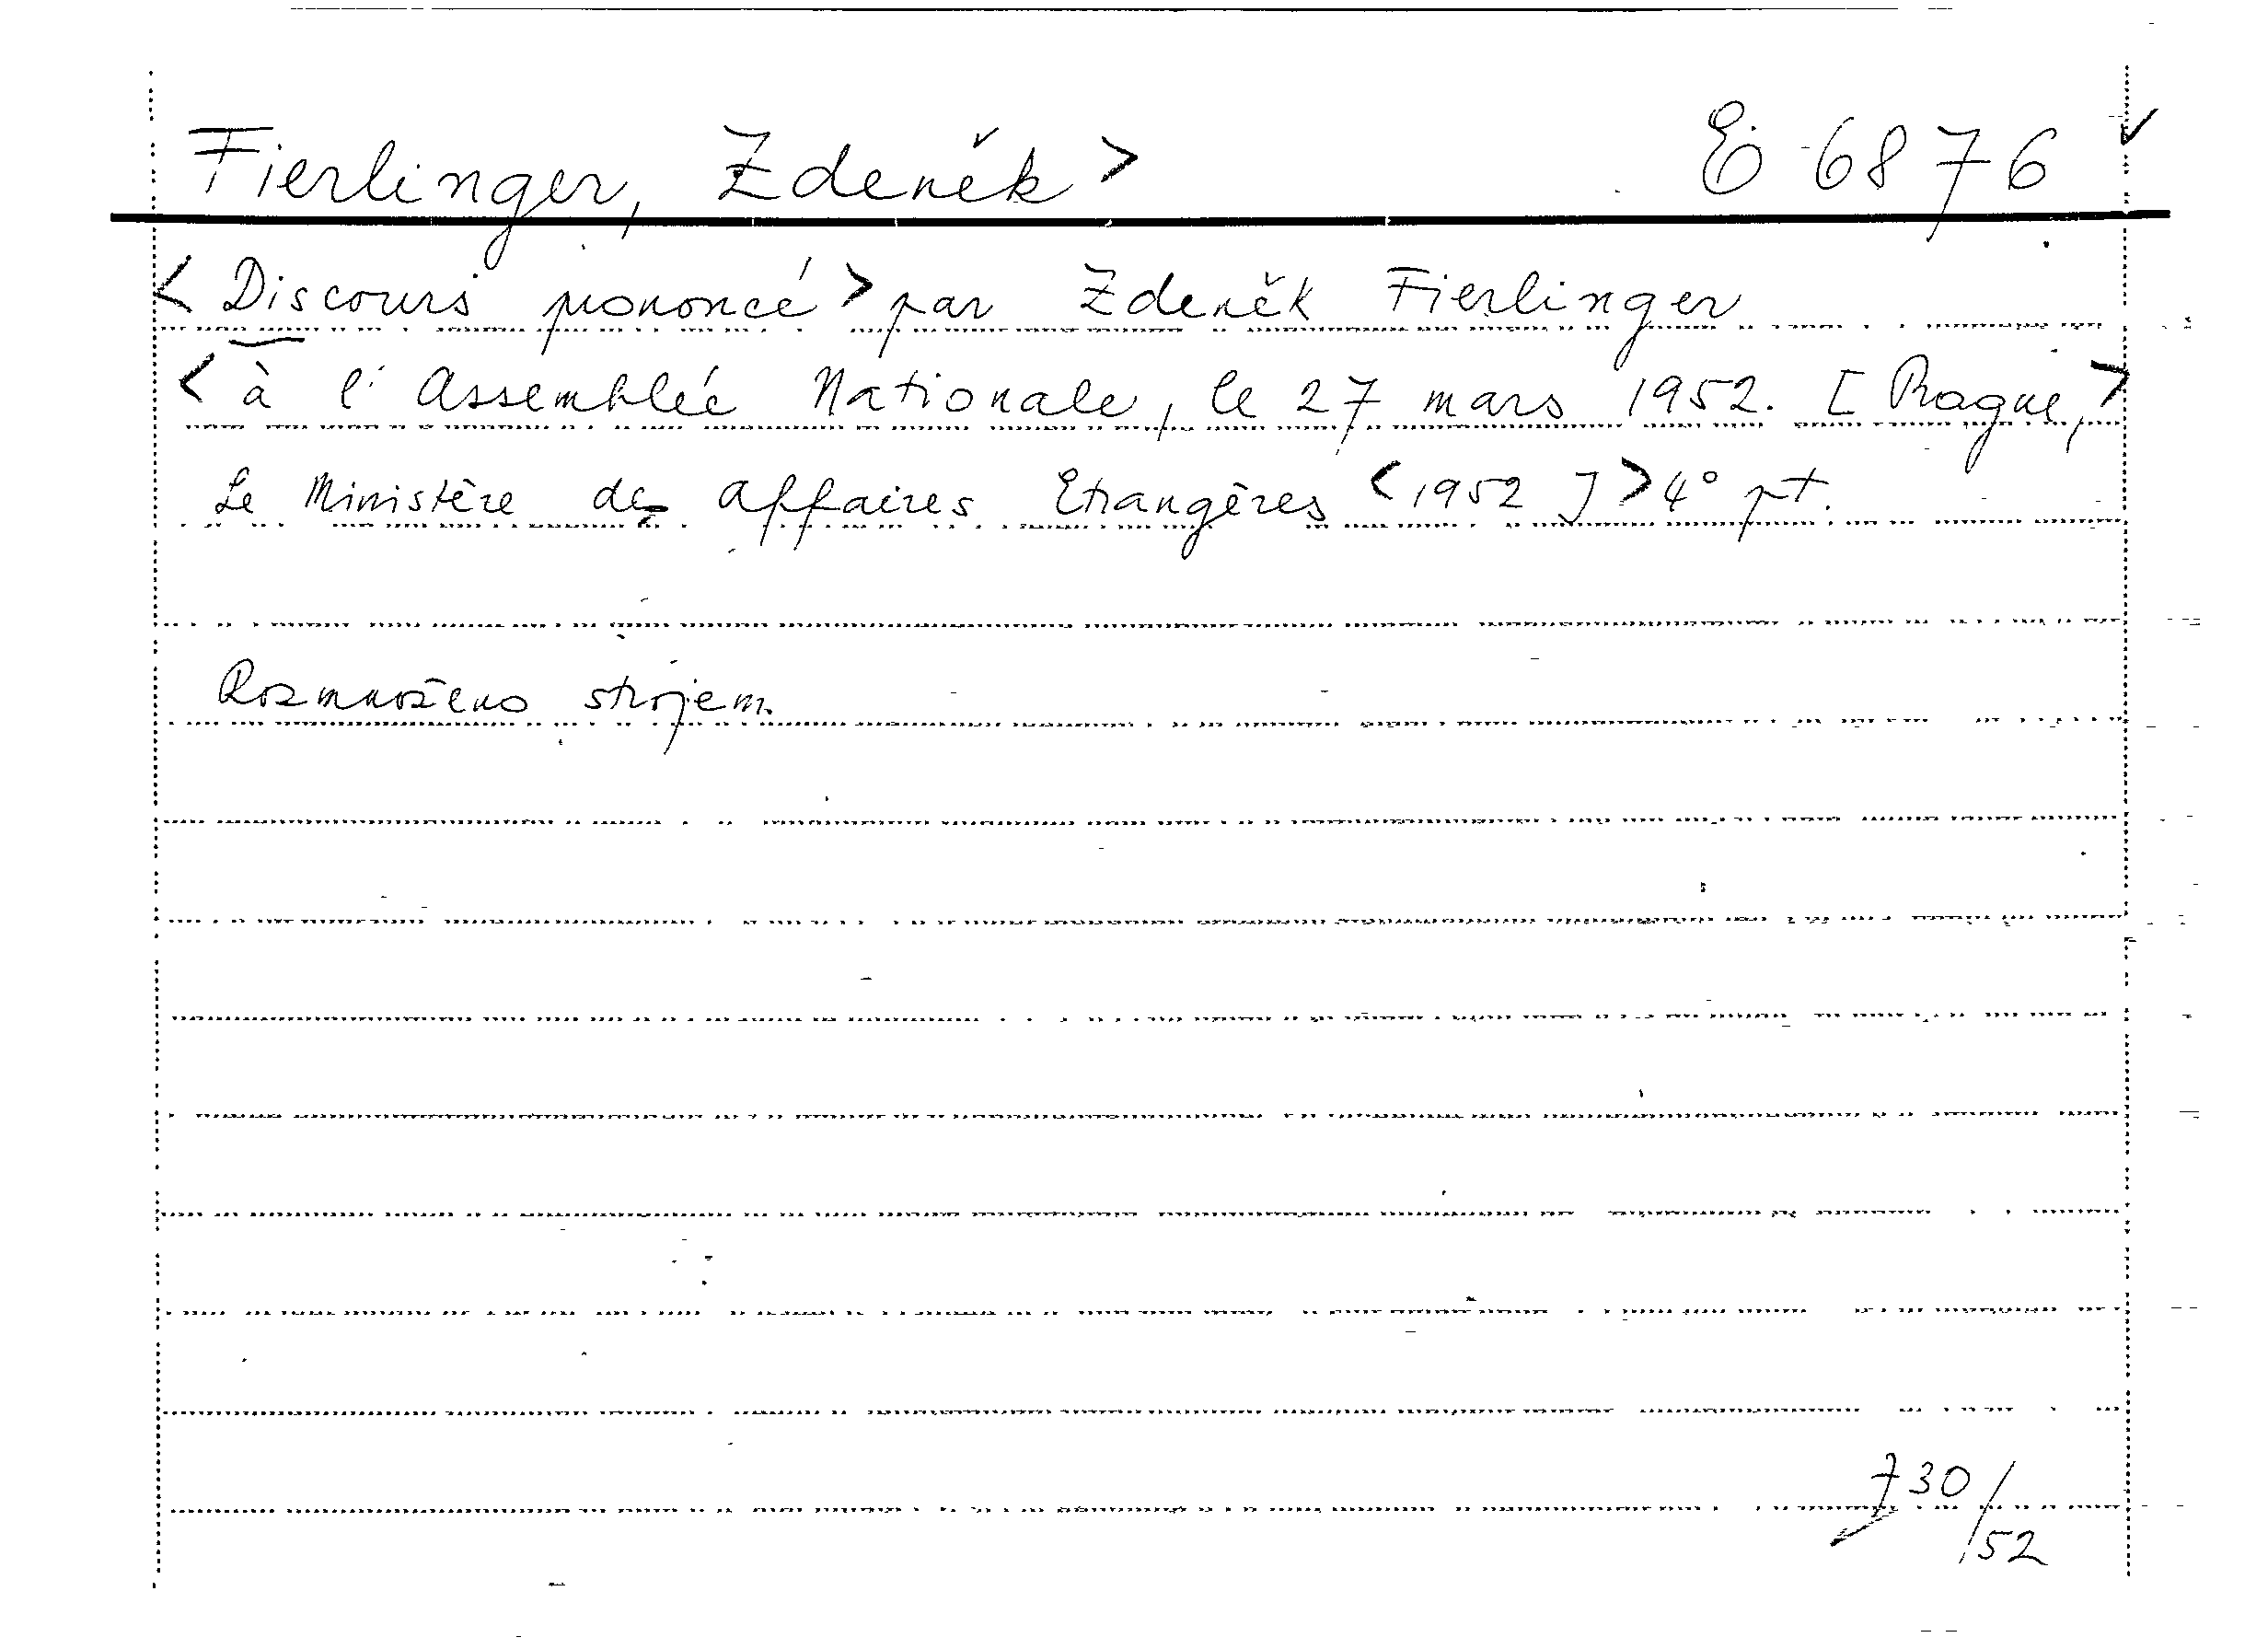 Fierlinger, Zdeněk > E 6876 ✓
< Discours prononcé > par Zdeněk Fierlinger
< à l'Assemblée Nationale, le 27 mars 1952. [Prague, >
Le Ministère des Affaires Etrangères < 1952 ] > 4° pt.
Rozmnoženo strojem.
730/52